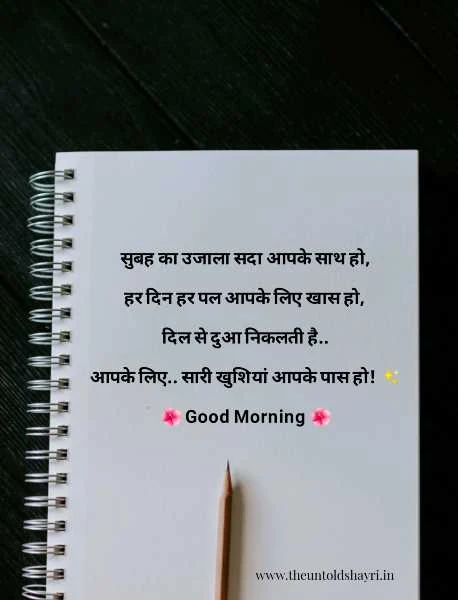 सुबह का उजाला सदा आपके साथ हो,
हर दिन हर पल आपके लिए खास हो,
दिल से दुआ निकलती है..
आपके लिए.. सारी खुशियां आपके पास हो! ✨
🌺 Good Morning 🌺
www.theuntoldshayri.in